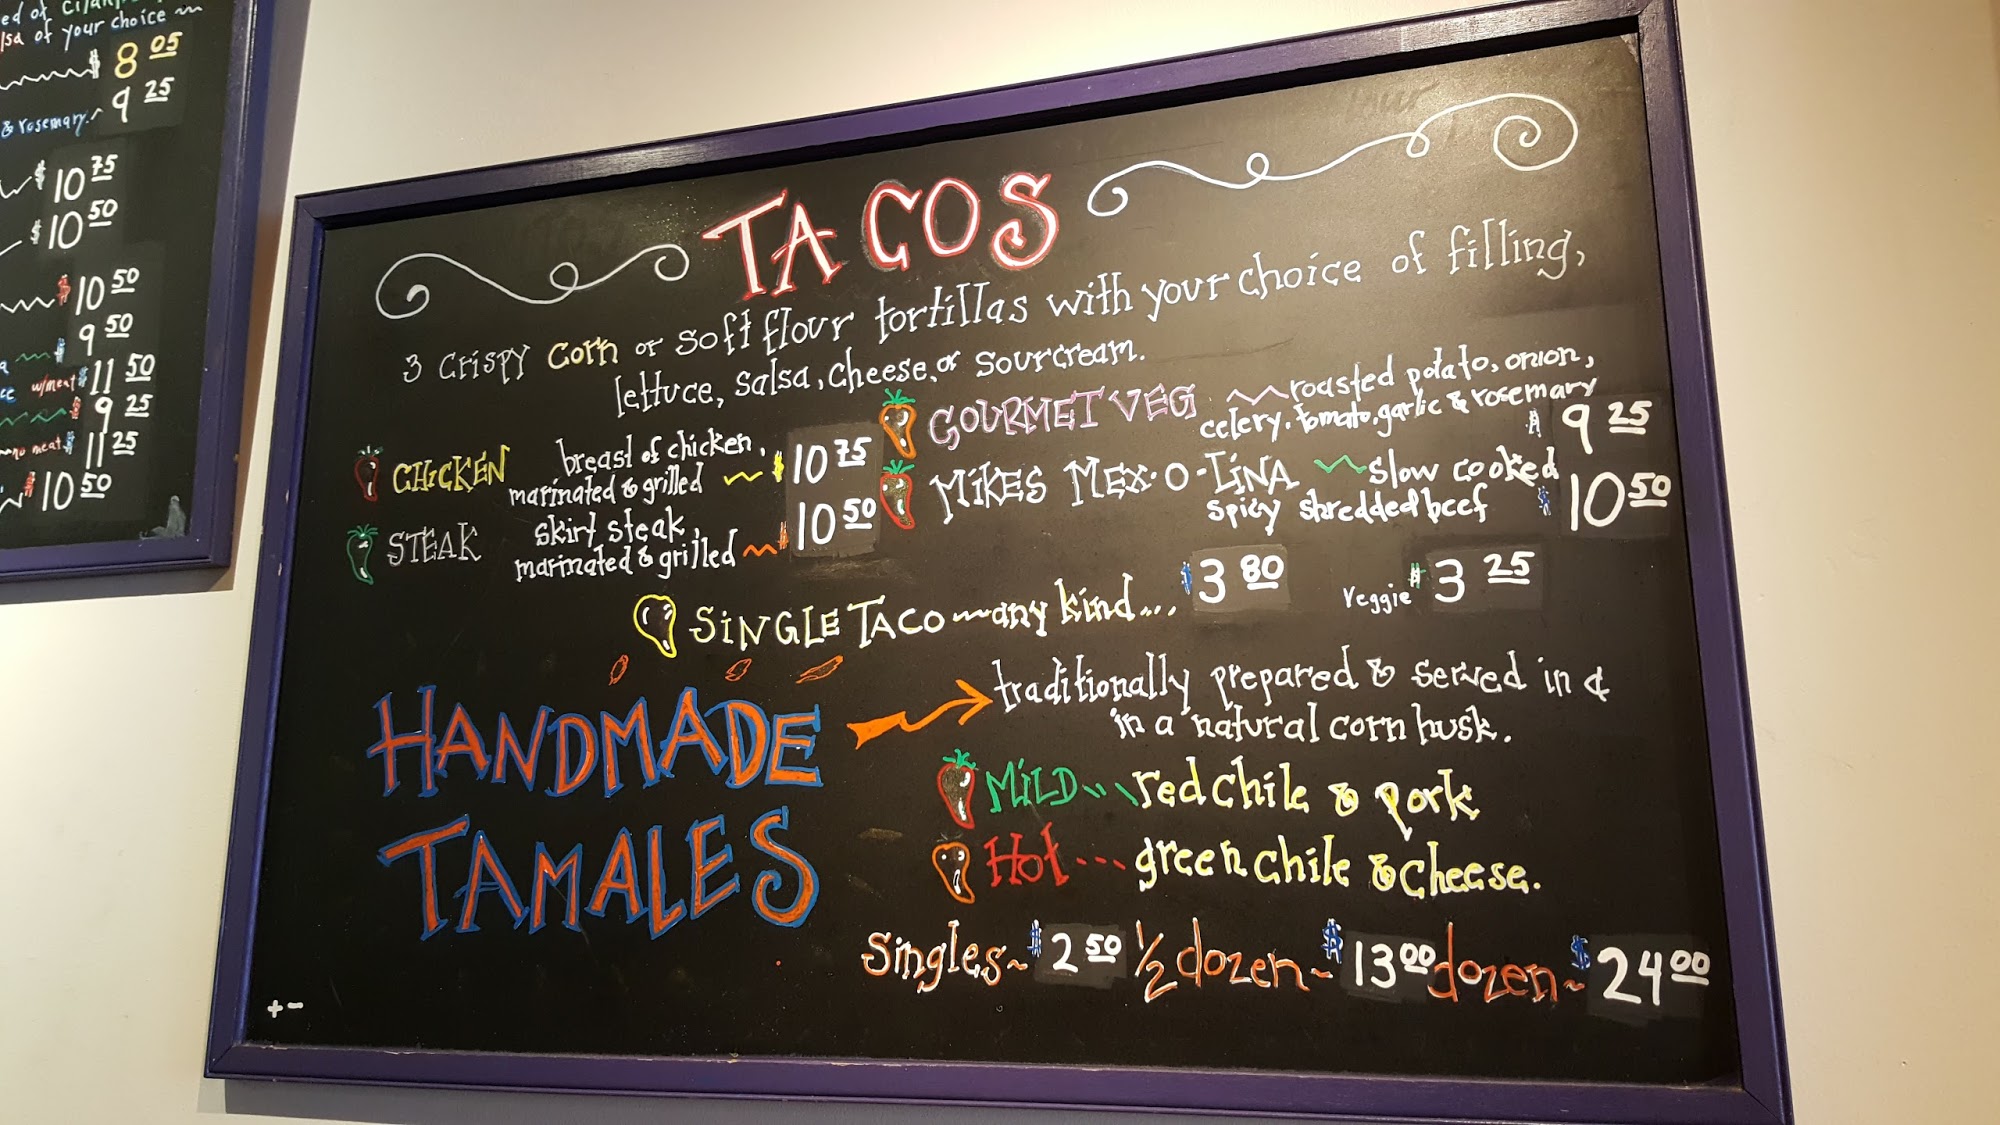 ed of
lsa of your choice
$ 8 05
9 25
& rosemary.
$ 10 75
$ 10 50
$ 10 50
$ 9 50
w/meat $ 11 50
$ 9 25
no meat $ 11 25
$ 10 50
TACOS
3 crispy corn or soft flour tortillas with your choice of filling,
lettuce, salsa, cheese, or sourcream.
CHICKEN breast of chicken,
marinated & grilled $10 75
STEAK skirt steak,
marinated & grilled $10 50
GOURMET VEG roasted potato, onion,
celery, tomato, garlic & rosemary $ 9 25
MIKES MEX-O-LINA slow cooked
spicy shredded beef $10 50
SINGLE TACO any kind... $3 80 veggie $3 25
HANDMADE
TAMALES
traditionally prepared & served in &
in a natural corn husk.
MILD... red chile & pork
Hot... green chile & cheese.
Singles~ $2 50 1/2 dozen~ $13 00 dozen~ $24 00
+-